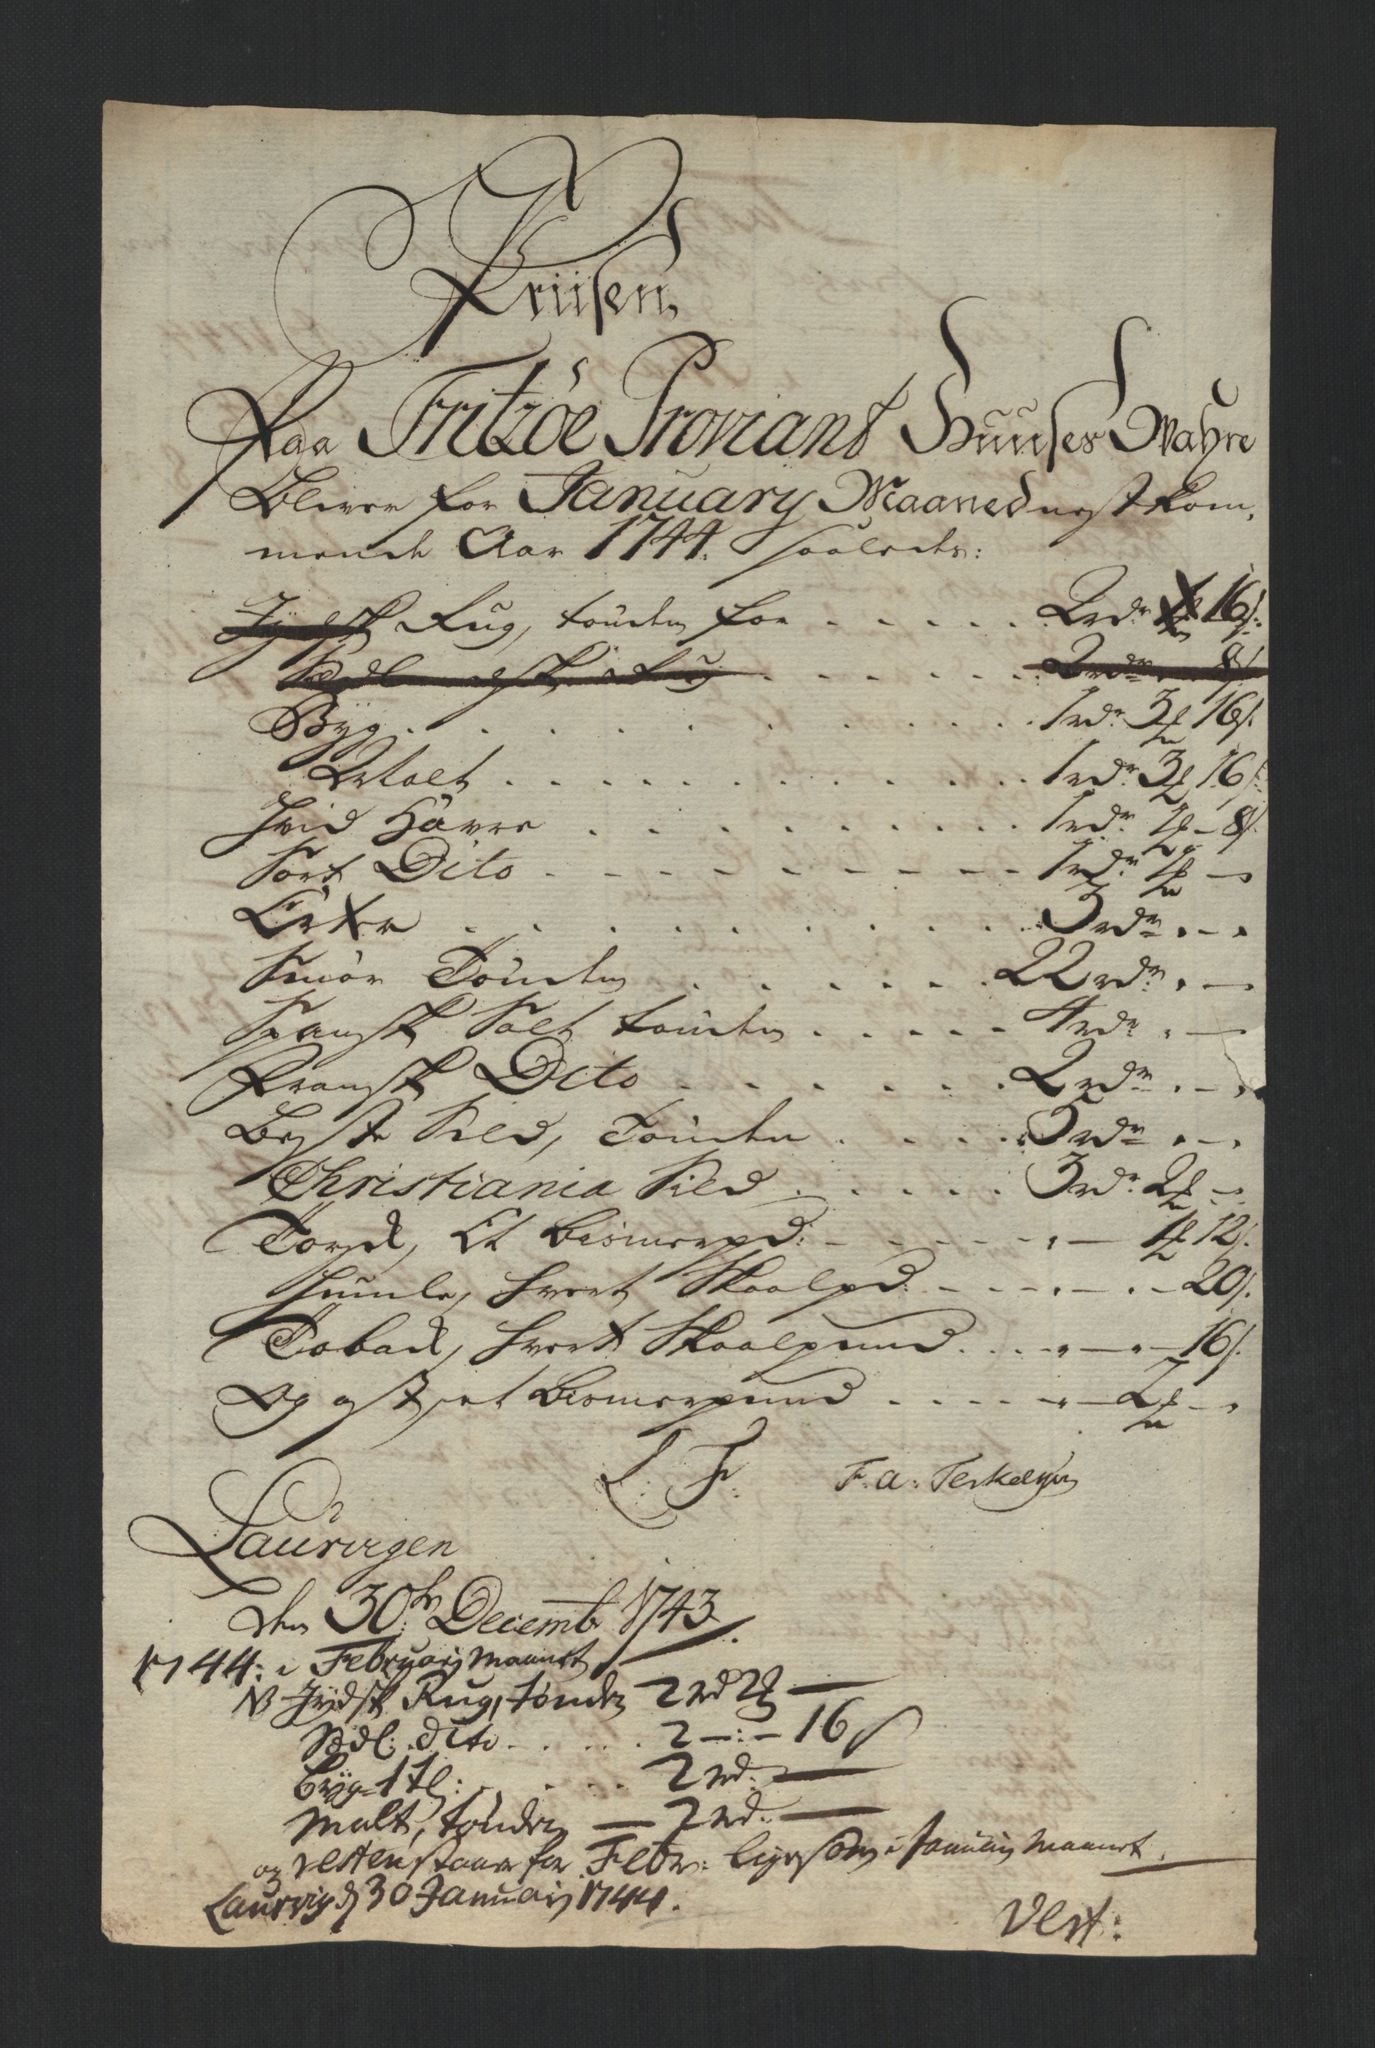 Priisen
Paa Fritzöe Proviant Huuses Wahre
bliver for January Maaned nestkom,
mende Aar 1744. saaledes:
Jydsk Rug, tönden for . . . . . 2 rdr 16 s:
Rug . . . . . . 2 rdr . 8 s
Byg . . . . . . . . . 1 rdr 3 16 s.
Malt . . . . . . . . . 1 rdr 3 16 s:
Hvid Havre . . . . . . . . 1 rdr 2 - 8 s.
Sort Dito . - . - . - . - 1 rdr 2 - .
Erter . . . . . . . . . 3 rdr . - .
Smör Tönden . . . . . . 22 rdr . -
Spansk Salt tönden . . . . - 4 rdr . -
Fransk Dito . . . . . . . 2 rdr . - .
beste Sild, Tönden . . . . 5 rdr . - .
Christiania Sild . . . . . 3 rdr 2 - .
Torsk, Et bismerpd: - - - - - . — 1 12 s.
Humle, hvert Skaalpd: - - - - . - . - 20 s.
Toback, hvert Skaalpund . . . . - . - 16 s.
Og ost, et bismerpund . . . . - . - 2 - .
L: S: F: a: Terkelsen
Laurvigen
den 30te Decembr 1743.
1744: i February Maanet
NB Jydsk Rug, tönden 2 rd 2 —
Sedl: dito . . . . . 2 — : — 16 s
byg 1 tl: . . . . . 2 rd: —
Malt, tönden — 2 rd: —
og resten staar for Febr: ligesom i January Maanet.
Laurvig d 30 January 1744.
Vert: